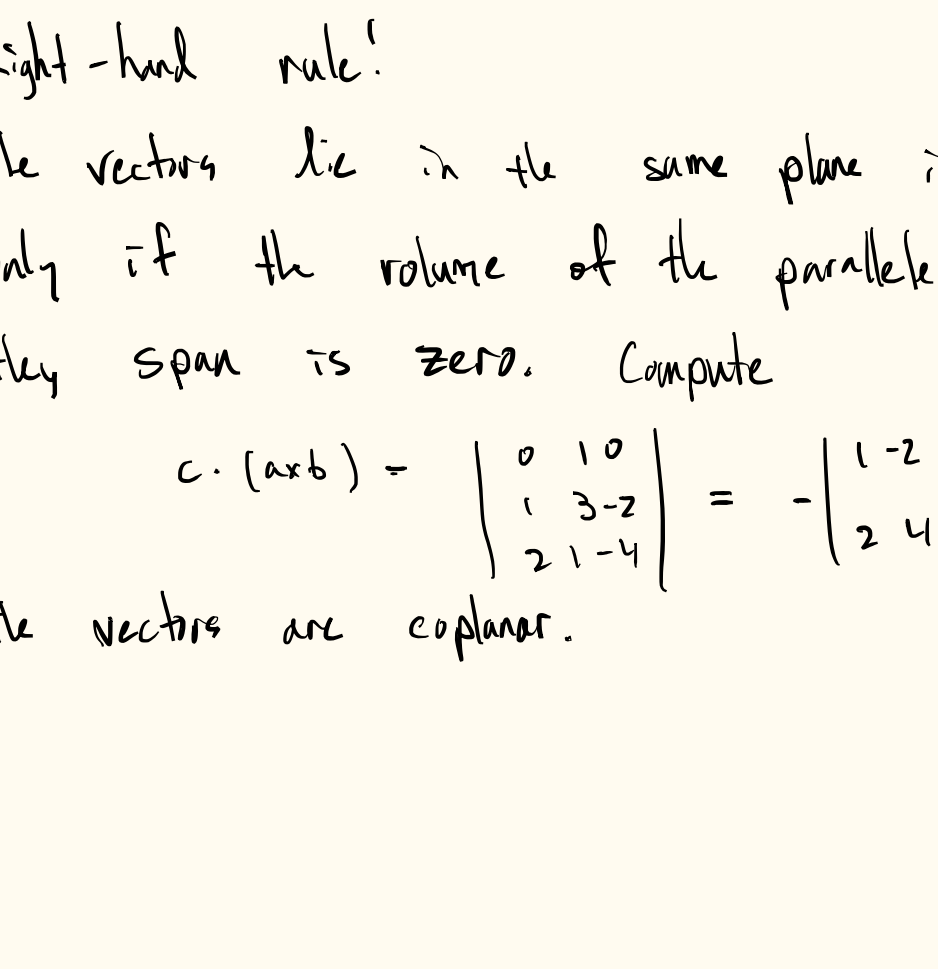 ight-hand rule!
he vectors lie in the same plane i
nly if the volume of the parallele
they span is zero. Compute
c · (axb) = | 0 1 0 | = - | 1 -2
| 1 3 -2 |
| 2 1 -4 | 2 4
the vectors are coplanar.